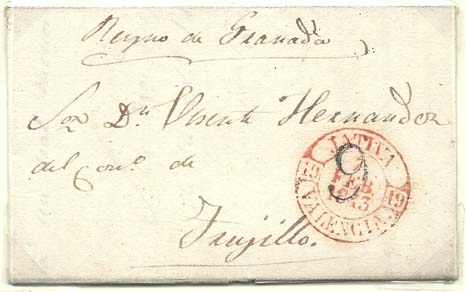 Reyno de Granada
Sor Dn Visente Hernandez
del con.o de
Trujillo.
JATIVA
FEB.
1843
19 19
VALENCIA.
9